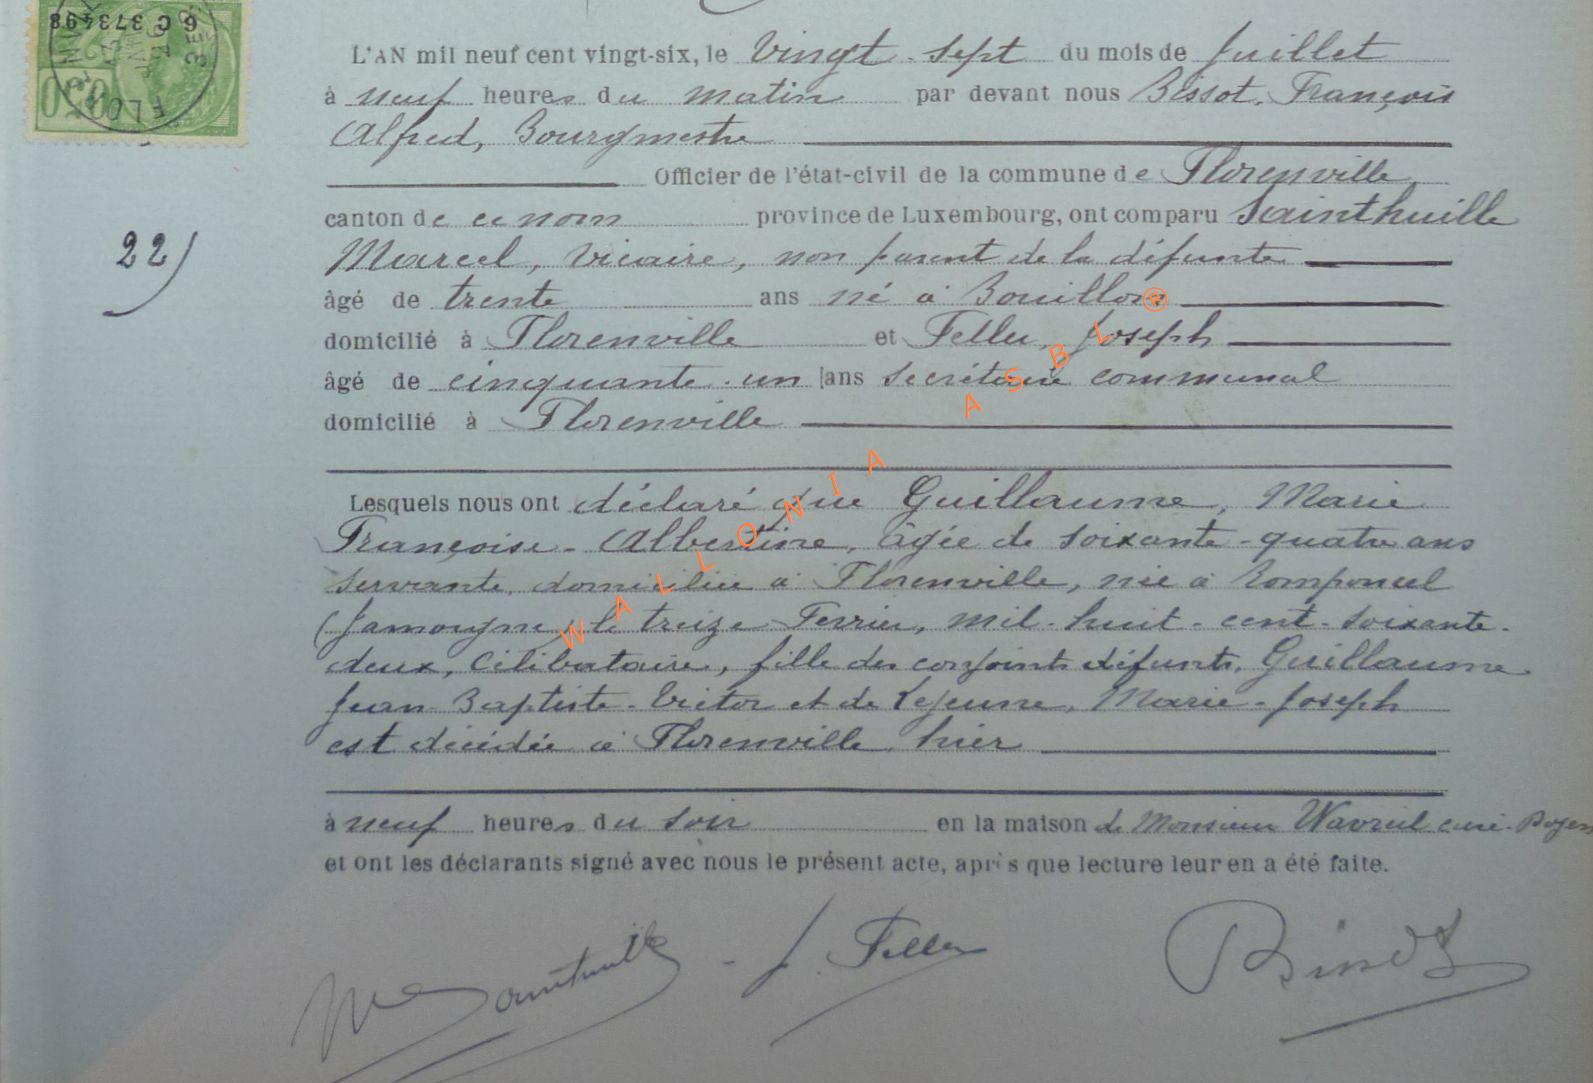 6 C 373498
L'AN mil neuf cent vingt-six, le vingt-sept du mois de Juillet
à neuf heures du matin par devant nous Bissot, François
Alfred, Bourgmestre
Officier de l'état-civil de la commune de Florenville,
22)
canton de ce nom province de Luxembourg, ont comparu Sainthuille
Marcel, vicaire, non parent de la défunte
âgé de trente ans né à Bouillon
domicilié à Florenville et Feller, Joseph
âgé de cinquante-un ans secrétaire communal
domicilié à Florenville
WALLONIA ASBL ®
Lesquels nous ont déclaré que Guillaume, Marie
Françoise-Albertine, âgée de soixante-quatre ans
servante, domiciliée à Florenville, née à Romponcel
(Jamoigne) le treize Février, mil-huit-cent-soixante-
deux, célibataire, fille des conjoints défunts, Guillaume
Jean-Baptiste-Victor et de Lejeune, Marie-Joseph
est décédée à Florenville, hier
à neuf heures du soir en la maison de Monsieur Wavreil curé-Doyen
et ont les déclarants signé avec nous le présent acte, après que lecture leur en a été faite.
M Sainthuille - J. Feller Bissot